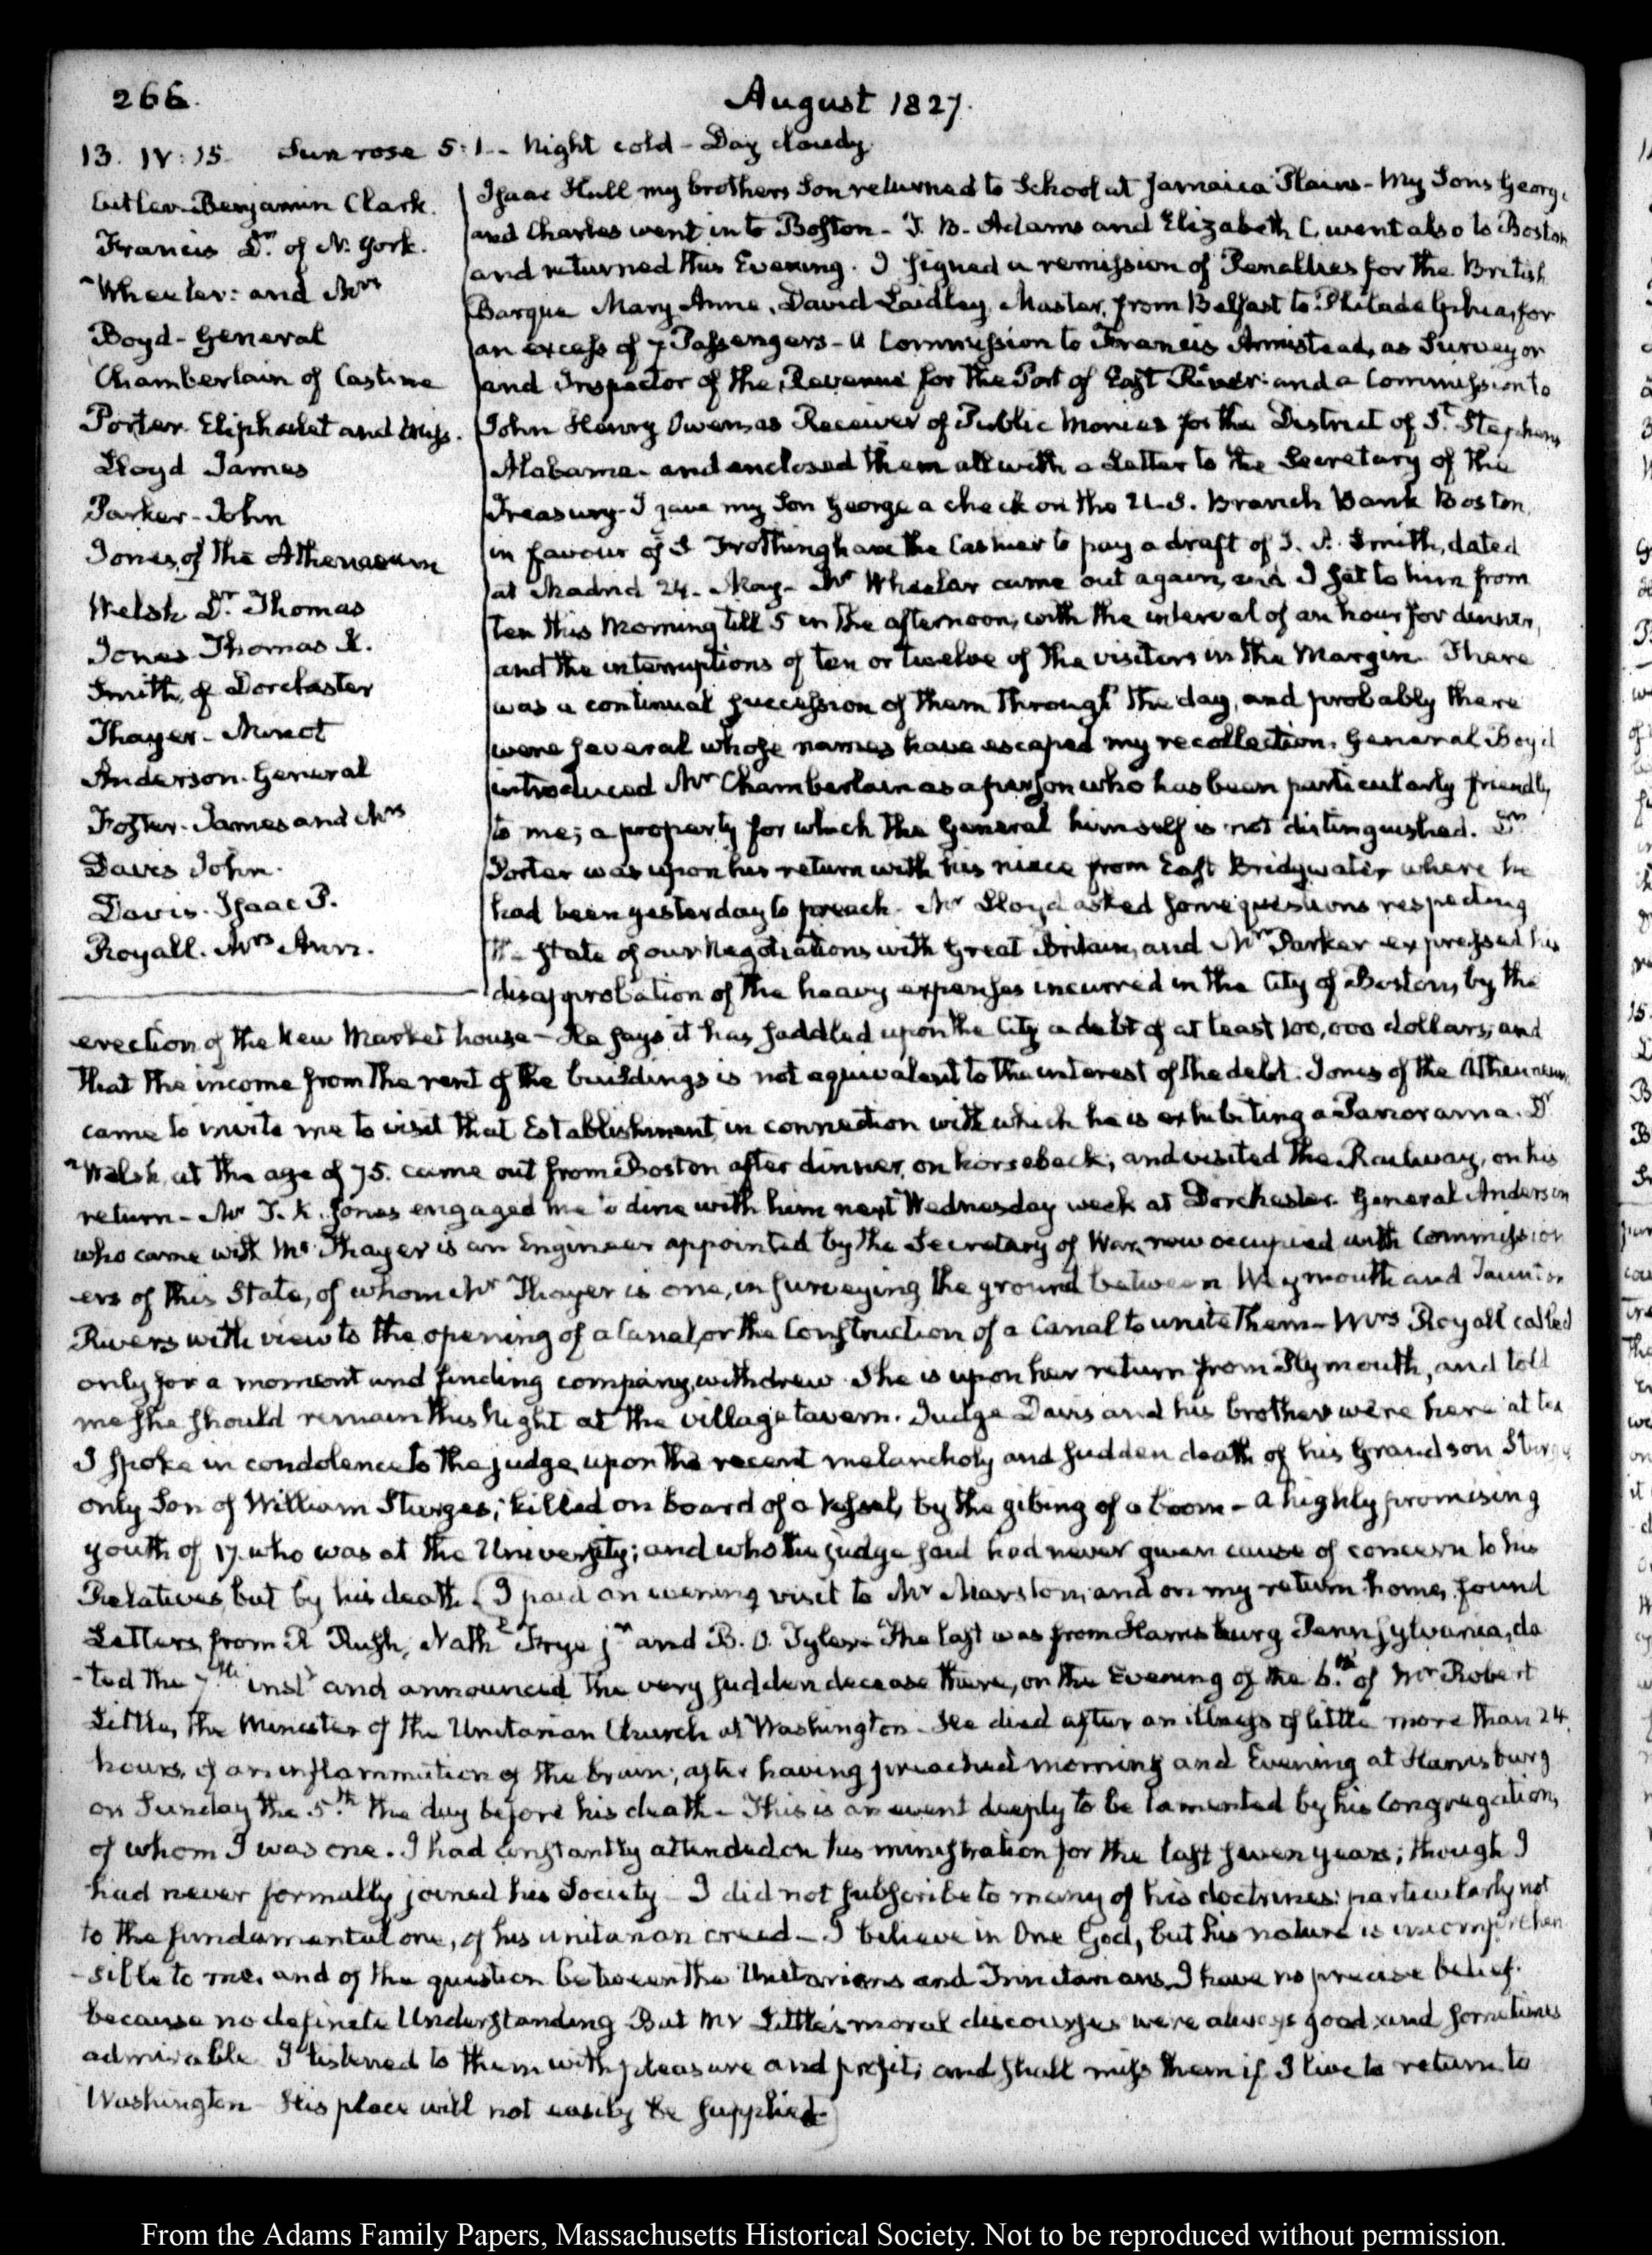 266.
August 1827.
13. IV: 15. Sun rose 5:1. - Night cold - Day cloudy
Cutler. Benjamin Clark.
Francis Dr. of N. York.
Wheeler: and Mrs
Boyd - General
Chamberlain of Castine
Porter Eliphalet and Miss.
Lloyd James
Parker - John
Jones, of the Athenaeum
Welsh Dr. Thomas
Jones Thomas K.
Smith, of Dorchester
Thayer - Minot
Anderson. General
Foster - James and Mrs
Davis John.
Davis. Isaac P.
Royall. Mrs Ann.
Isaac Hull my brothers Son returned to School at Jamaica Plains - My Sons George
and Charles went in to Boston - T. B. Adams and Elizabeth C. went also to Boston
and returned this Evening. I signed a remission of Penalties for the British
Barque Mary Anne, David Laidley, Master, from Belfast to Philadelphia, for
an excess of 7 Passengers - a Commission to Francis Armistead, as Surveyor
and Inspector of the Revenue for the Port of East River: and a Commission to
John Henry Owen, as Receiver of Public Monies for the District of St. Stephens
Alabama - and enclosed them all with a Letter to the Secretary of the
Treasury - I gave my Son George a check on the U.S. Branch Bank Boston,
in favour of S Frothingham the Cashier to pay a draft of J. A. Smith, dated
at Madrid 24. May - Mr Wheeler came out again, and I sat to him from
ten this Morning till 5 in the afternoon, with the interval of an hour for dinner,
and the interruptions of ten or twelve of the visitors in the Margin. There
was a continual succession of them through the day, and probably there
were several whose names have escaped my recollection. General Boyd
introduced Mr Chamberlain as a person who has been particularly friendly
to me; a property for which the General himself is not distinguished. Dr
Porter was upon his return with his niece from East Bridgwater where he
had been yesterday to preach. Mr Lloyd asked some questions respecting
the State of our Negotiations with Great Britain, and Mr Parker expressed his
disapprobation of the heavy expenses incurred in the City of Boston, by the
erection of the New Market house - He says it has saddled upon the City a debt of at least 100,000 dollars; and
that the income from the rent of the buildings is not equivalent to the interest of the debt. Jones of the Athenaeum,
came to invite me to visit that Establishment, in connection with which he is exhibiting a Panorama. Dr
Welsh, at the age of 75. came out from Boston after dinner, on horseback; and visited the Railway, on his
return - Mr T. K. Jones engaged me to dine with him next Wednesday week at Dorchester. General Anderson
who came with Mr Thayer is an Engineer appointed by the Secretary of War, now occupied with Commission
ers of this State, of whom Mr Thayer is one, in surveying the ground between Weymouth and Taunton
Rivers with view to the opening of a Canal, or the Construction of a Canal to unite them - Mrs Royall called
only for a moment and finding company, withdrew. She is upon her return from Plymouth, and told
me she should remain this Night at the village tavern. Judge Davis and his brother were here at tea
I spoke in condolence to the judge, upon the recent melancholy and sudden death of his Grandson Sturges
only Son of William Sturges; killed on board of a Vessel, by the gibing of a boom - a highly promising
youth of 17. who was at the University; and who the judge said had never given cause of concern to his
Relatives, but by his death. (I paid an evening visit to Mr Marston; and on my return home, found
Letters from R Rush, Nathl Frye jr and B. O. Tyler - The last was from Harrisburg Pennsylvania, da
-ted the 7th inst and announced the very sudden decease there, on the Evening of the 6th of Mr Robert
Little, the Minister of the Unitarian Church at Washington - He died after an illness of little more than 24
hours, of an inflammation of the brain; after having preached morning and Evening at Harrisburg
on Sunday the 5th the day before his death - This is an event deeply to be lamented by his Congregation,
of whom I was one. I had constantly attended on his ministration for the last seven years; though I
had never formally joined his Society - I did not subscribe to many of his doctrines: particularly not
to the fundamental one, of his unitarian creed - I believe in One God, but his nature is incomprehen
-sible to me, and of the question between the Unitarians and Trinitarians, I have no precise belief.
because no definite Understanding But Mr Little's moral discourses were always good and sometimes
admirable I listened to them with pleasure and profit, and shall miss them if I live to return to
Washington - His place will not easily be supplied)
From the Adams Family Papers, Massachusetts Historical Society. Not to be reproduced without permission.